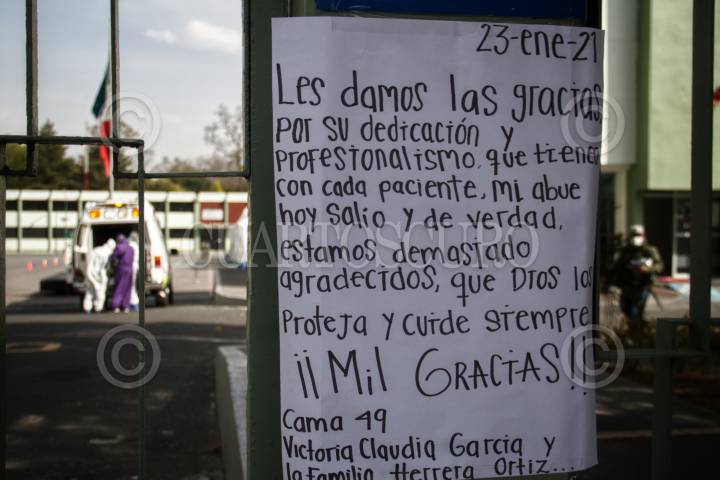 23-ene-21
Les damos las gracias
por su dedicación y
profesionalismo que tienen
con cada paciente, mi abue
hoy salio y de verdad
estamos demasiado
agradecidos, que Dios los
Proteja y cuide siempre
¡¡Mil Gracias!!
Cama 49
Victoria Claudia Garcia y
la familia Herrera Ortiz...
CUARTOSCURO